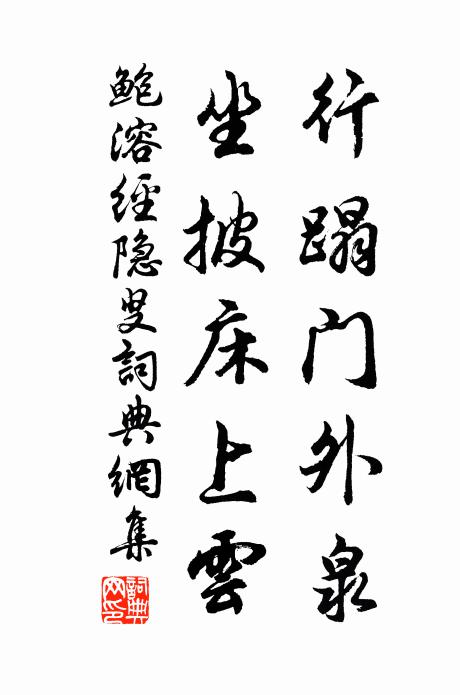 行蹋门外泉
坐披床上雲
鲍溶經隐叟詞典網集
詞典網印